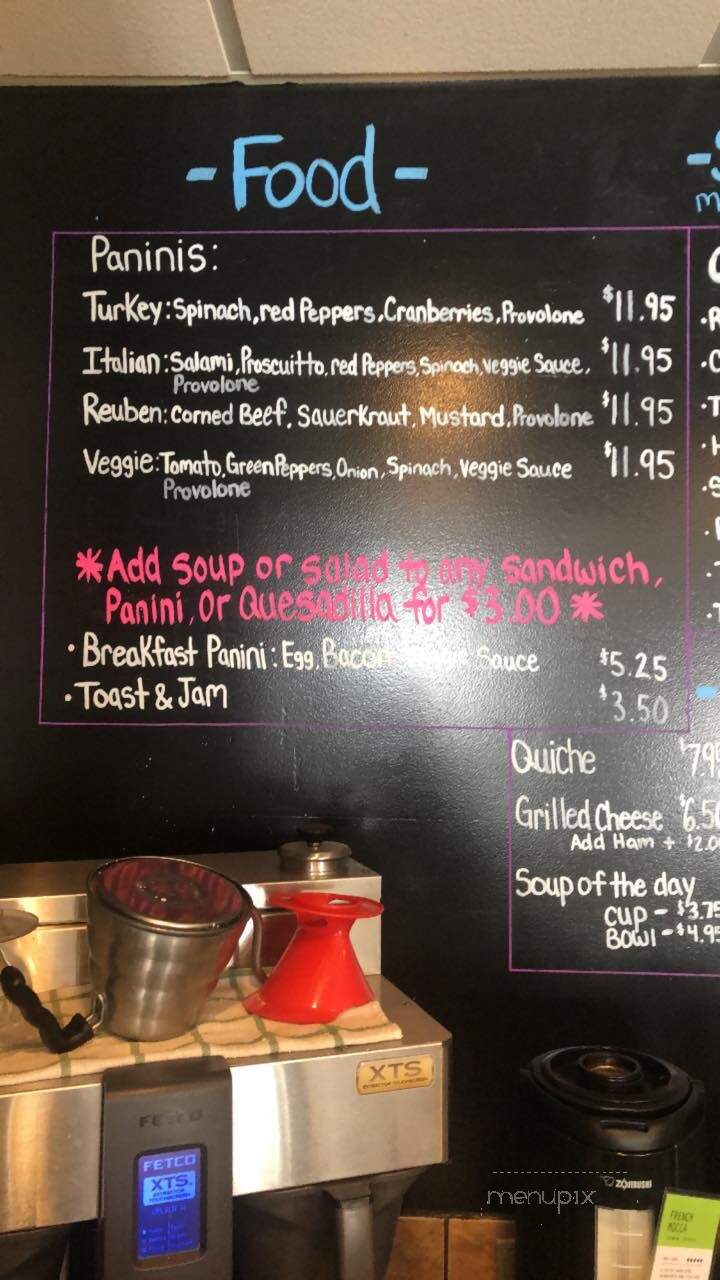 - Food -
Paninis:
Turkey: Spinach, red Peppers, Cranberries, Provolone $11.95
Italian: Salami, Proscuitto, red Peppers, Spinach, veggie Sauce, $11.95
Provolone
Reuben: corned Beef, Sauerkraut, Mustard, Provolone $11.95
Veggie: Tomato, Green Peppers, Onion, Spinach, Veggie Sauce $11.95
Provolone
*Add soup or salad to any sandwich,
Panini, Or Quesadilla for $3.00 *
• Breakfast Panini: Egg, Bacon Sauce $5.25
• Toast & Jam $3.50
Quiche
Grilled Cheese $6.50
Add Ham + $2.00
Soup of the day
CUP - $3.75
BOWl - $4.95
XTS
FETCO
FETCO
XTS
ZOJIRUSHI
menupix
FRENCH
MOCCA